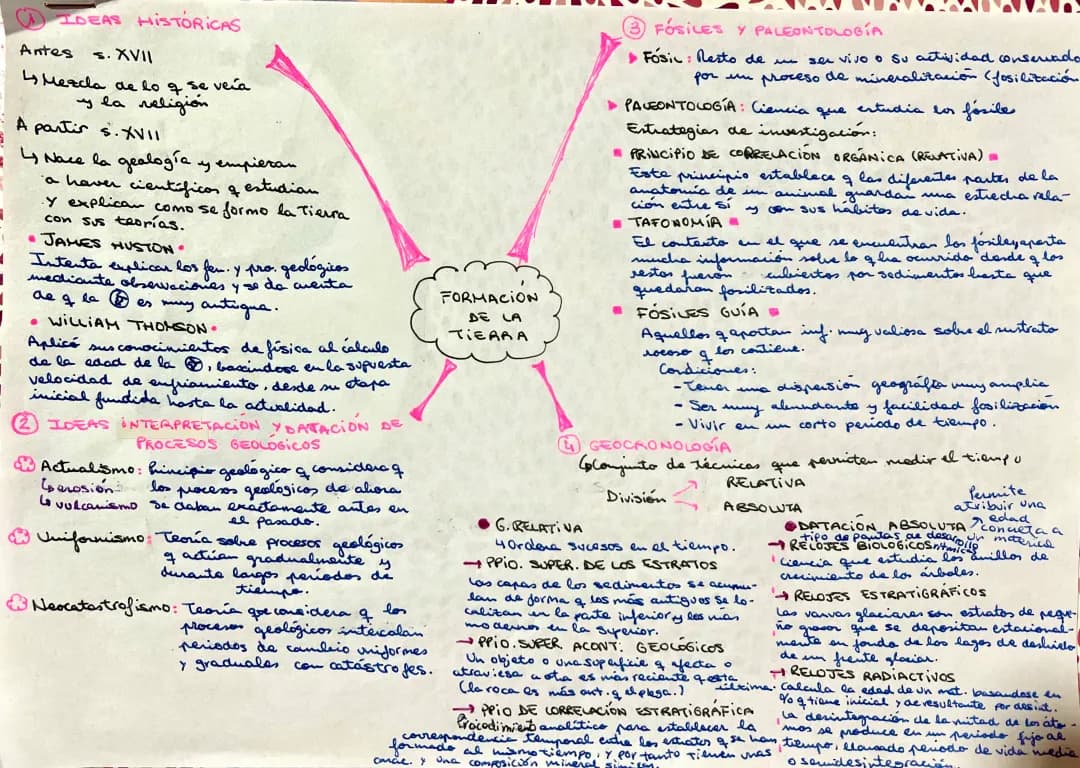 FORMACIÓN
DE LA
TIERRA
① IDEAS HISTÓRICAS
Antes s. XVII
↳ Mezcla de lo q se veía
y la religión
A partir s. XVII
↳ Nace la geología y empiezan
a haver científicos q estudian
y explican como se formo la Tierra
con sus teorías.
• JAMES HUSTON •
Intenta explicar los fen. y pro. geológicos
mediante observaciones y se da cuenta
de q la es muy antigua.
• WILLIAM THOMSON •
Aplicó sus conocimientos de física al cálculo
de la edad de la , basándose en la supuesta
velocidad de enfriamiento, desde su etapa
inicial fundida hasta la actualidad.
② IDEAS INTERPRETACIÓN Y DATACIÓN DE
PROCESOS GEOLÓGICOS
Actualismo: Principio geológico q considera q
↳ erosión los procesos geológicos de ahora
↳ vulcanismo se daban exactamente antes en
el pasado.
Uniformismo: Teoría sobre procesos geológicos
q actúan gradualmente y
durante largos periodos de
tiempo.
Neocatastrofismo: Teoría que considera q los
procesos geológicos intercalan
periodos de cambio uniformes
y graduales con catástrofes.
③ FÓSILES Y PALEONTOLOGÍA
▸ FÓSIL: Resto de un ser vivo o su actividad conservado
por un proceso de mineralización (fosilización
▸ PALEONTOLOGÍA: Ciencia que estudia los fósiles
Estrategias de investigación:
▪ PRINCIPIO DE CORRELACIÓN ORGÁNICA (RELATIVA) ▪
Este principio establece q las diferentes partes de la
anatomía de un animal guardan una estrecha rela-
ción entre sí y con sus hábitos de vida.
▪ TAFONOMÍA ▪
El contexto en el que se encuentran los fósiles aporta
mucha información sobre lo q ha ocurrido desde q los
restos fueron cubiertos por sedimentos hasta que
quedaran fosilizados.
▪ FÓSILES GUÍA ▪
Aquellos q aportan inf. muy valiosa sobre el sustrato
rocoso q los contiene.
Condiciones:
- Tener una dispersión geográfía muy amplia
- Ser muy abundante y facilidad fosilización
- Vivir en un corto periodo de tiempo.
④ GEOCRONOLOGÍA
↳ Conjunto de técnicas que permiten medir el tiempo
División
RELATIVA
ABSOLUTA
• G. RELATIVA
↳ Ordena sucesos en el tiempo.
→ PPIO. SUPER. DE LOS ESTRATOS
Las capas de los sedimentos se acumu-
lan de forma q las más antiguas se lo-
calizan en la parte inferior y las más
modernos en la superior.
→ PPIO. SUPER ACONT. GEOLÓGICOS
Un objeto o una superficie q afecta o
atraviesa a otra es más reciente q esta
última. (la roca es más ant. q el pliega.)
→ PPIO DE CORRELACIÓN ESTRATIGRÁFICA
Procedimiento analítico para establecer la
correspondencia temporal entre los estratos q se han
formado al mismo tiempo, y por tanto tienen unas
carác. y una composición mineral similar.
• DATACIÓN ABSOLUTA
Permite
atribuir una
edad
concreta a
un material
→ RELOJES BIOLÓGICOS
tipo de pautas de desarrollo
rítmico
ciencia que estudia los anillos de
crecimiento de los árboles.
→ RELOJES ESTRATIGRÁFICOS
Las varvas glaciares son estratos de peque
ño grosor que se depositan estacional-
mente en fondo de los lagos de deshielo
de un frente glaciar.
→ RELOJES RADIACTIVOS
Calcula la edad de un mat. basandose en
% q tiene inicial y de resultante por desint.
La desintegración de la mitad de los áto-
mos se produce en un periodo fijo al
tiempo, llamado periodo de vida media
o semidesintegración.